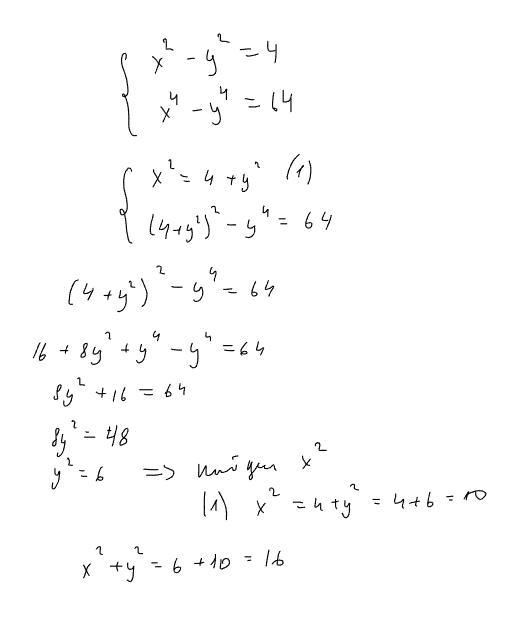 x² - y² = 4
x⁴ - y⁴ = 64
x² = 4 + y² (1)
(4+y²)² - y⁴ = 64
(4 + y²)² - y⁴ = 64
16 + 8y² + y⁴ - y⁴ = 64
8y² + 16 = 64
8y² = 48
y² = 6 => x²
(1) x² = 4 + y² = 4 + 6 = 10
x² + y² = 6 + 10 = 16